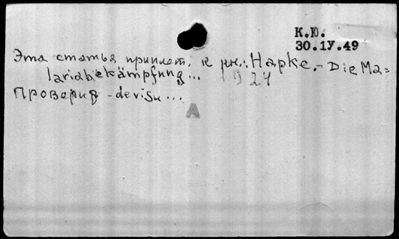 К.Ю.
30.IV.49
Эта статья приплет. к кн.: Hapke.- Die Ma=
lariabekämpfung... 1924
Проверил - de visu...
А